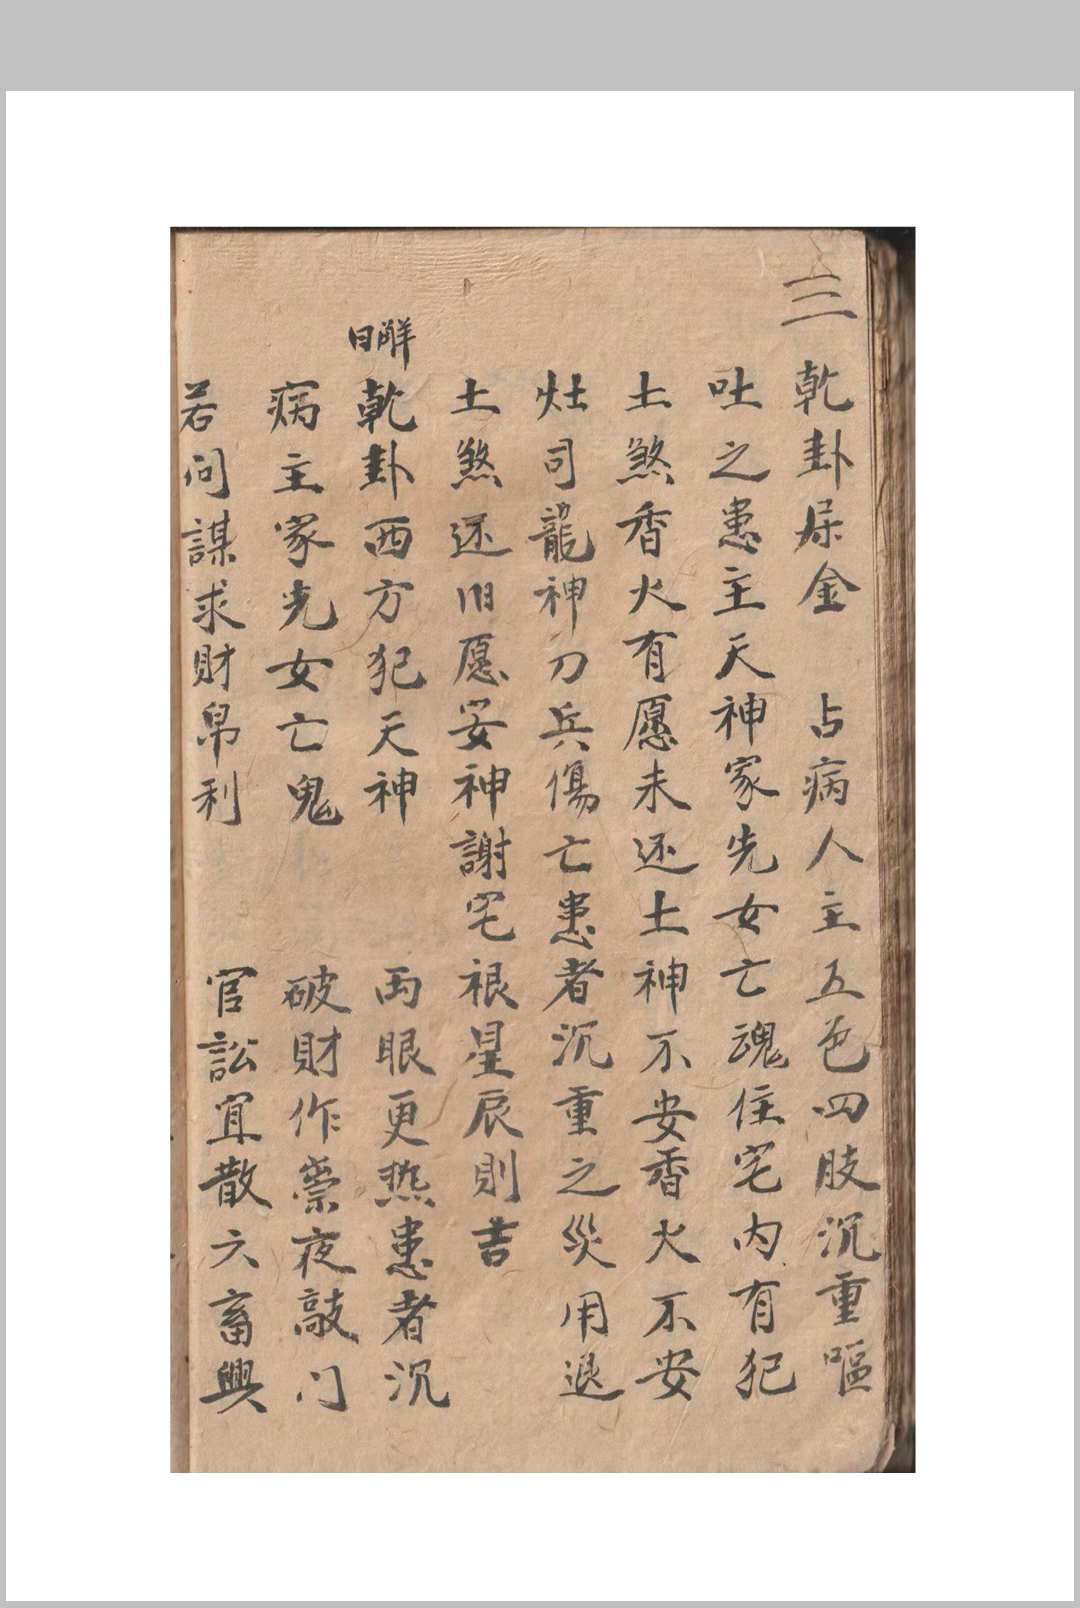 ☰
乾卦屎金 占病人主五色四肢沉重嘔
吐之患主天神家先女亡魂住宅内有犯
土煞香火有愿未还土神不安香火不安
灶司龍神刀兵傷亡患者沉重之災用退
土煞还旧愿妥神謝宅禳星辰則吉
解曰
乾卦西方犯天神 両眼更热患者沉
病主家先女亡鬼 破財作祟夜敲门
若问謀求財帛利 官訟宜散六畜興